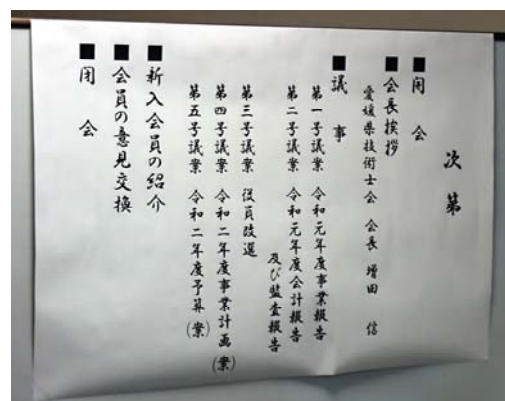 次第
■開会
■会長挨拶
愛媛県技術士会 会長 増田 信
■議事
第一号議案 令和元年度事業報告
第二号議案 令和元年度会計報告
及び監査報告
第三号議案 役員改選
第四号議案 令和二年度事業計画(案)
第五号議案 令和二年度予算(案)
■新入会員の紹介
■会員の意見交換
■閉会